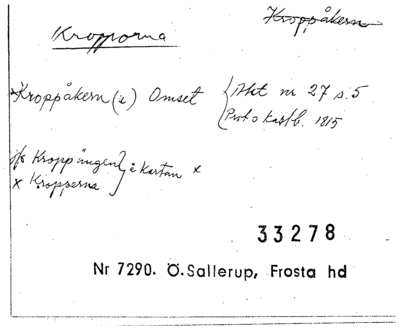 Kroppåkern
Kropporna
*Kroppåkern (i) Omset { Akt nr 27 s.5
Prot o kastb. 1815
jfr Kroppängen } å kartan x
x Kropperna
33278
Nr 7290. Ö.Sallerup, Frosta hd